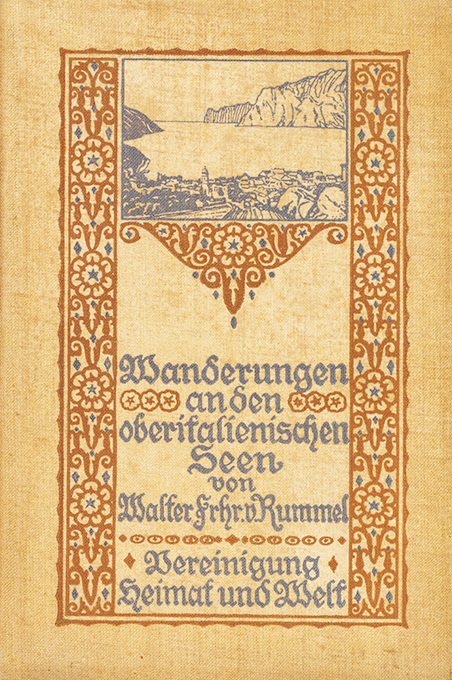 Wanderungen
an den
oberitalienischen
Seen
von
Walter Frhr. v. Rummel
Vereinigung
Heimat und Welt